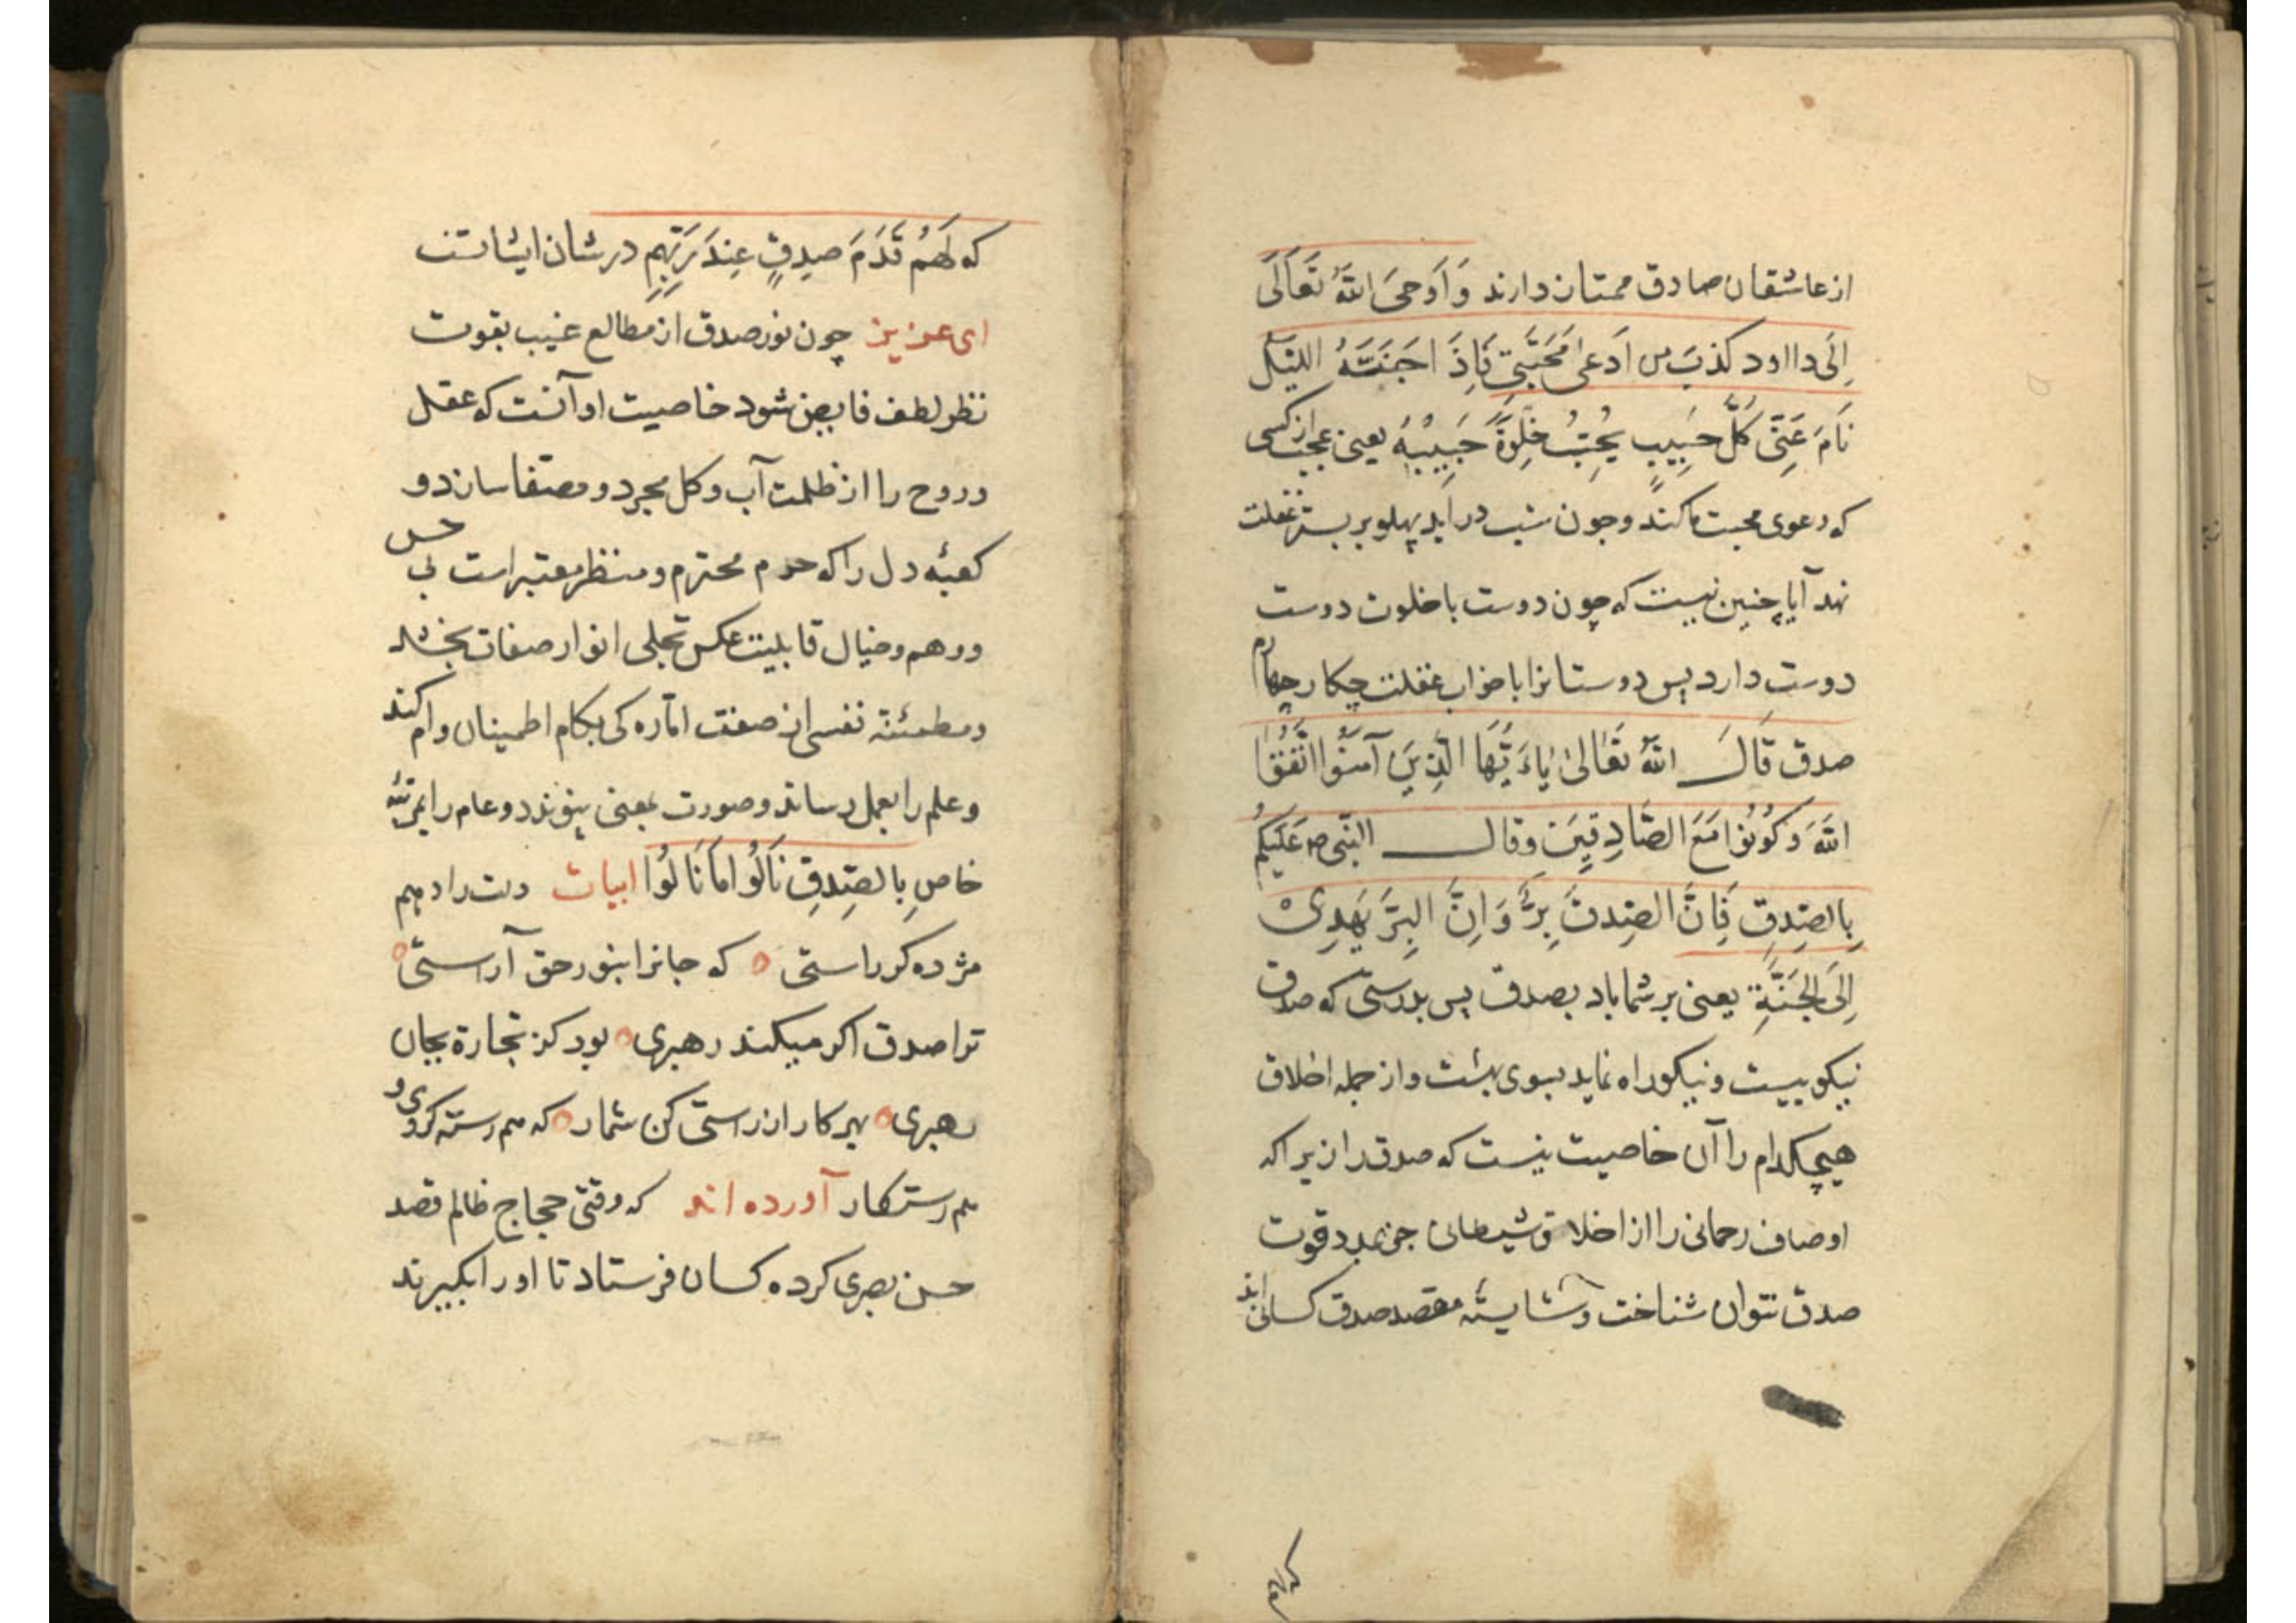 از عاشقان صادق ممتاز دارند وَ اَوحىَ اللّٰهُ تَعَالَى
اِلَى دااود كذبَ من ادَعى مَحَبَّتِى فَاِذَ اجَنَتَهُ الليَل
نَامَ عَنِّى كُلُّ حَبِيبٍ يُحِبُّ خلِوَةً حَبِيبِهُ يعنى عجب از كسى
كه دعوى محبت ما كند و چون شب درايد پهلو بر بستر غفلت
نهد آيا چنين نيست كه چون دوست با خلوت دوست
دوست دارد پس دوستانرا با خواب غفلت چكار چهارم
صدق قَالَ اللّٰهُ تَعَالىٰ يٰاءَيُّهَا الَّذِينَ آمنُوا اتَّقُوا
اللّٰهَ وَ كُونُوا مَعَ الصَّادِقِينَ وقال النّبى ص عَلَيكُم
بِالصِدِقِ فَاِنَّ الصِّدقَ بِرٌّ وَ اِنَّ البِرَّ يَهدِى
اِلىَ الجَنَّةِ يعنى بر شما باد بصدق پس بدرستى كه صدق
نيكوييست و نيكو راه نمايد بسوى بهشت و از جمله اخلاق
هيچكدام را آن خاصيت نيست كه صدق را زيراكه
اوصاف رحمانى را از اخلاق شيطانى جز بمدد قوت
صدق نتوان شناخت و شايسته مقصد صدق كسانى اند
كه لَهُم قَدَمَ صِدقٍ عِندَ رَبِّهِم در شان ايشانست
اى عزيز چون نور صدق از مطالع غيب بقوت
نظر لطف فايض شود خاصيت او آنست كه عقل
و روح را از ظلمت آب و كل مجرد و مصفا سازد و
كعبهٔ دل را كه حرم محترم و منظر معتبر است بى حس
و وهم و خيال قابليت عكس تجلى انوار صفات بخشد
و مطمئنه نفس از صفت اماره كى بكام اطمينان وام كند
و علم را بعمل رساند و صورت بمعنى پيوندد و عام را بمرتبهٔ
خاص بِالصِدِقِ نَالُوا مَا نَالُوا ابيات دلت را دهم
مژده كر راستى ه كه جانرا بنور حق آراستى ه
ترا صدق اكر ميكند رهبرى ه بود كز تجارة بجان
رهبرى ه بهر كار از راستى كن شمار ه كه هم رسته كردى و
هم رستكار آورده اند كه وقتى حجاج ظالم قصد
حسن بصرى كرده كسان فرستاد تا او را بكيرند